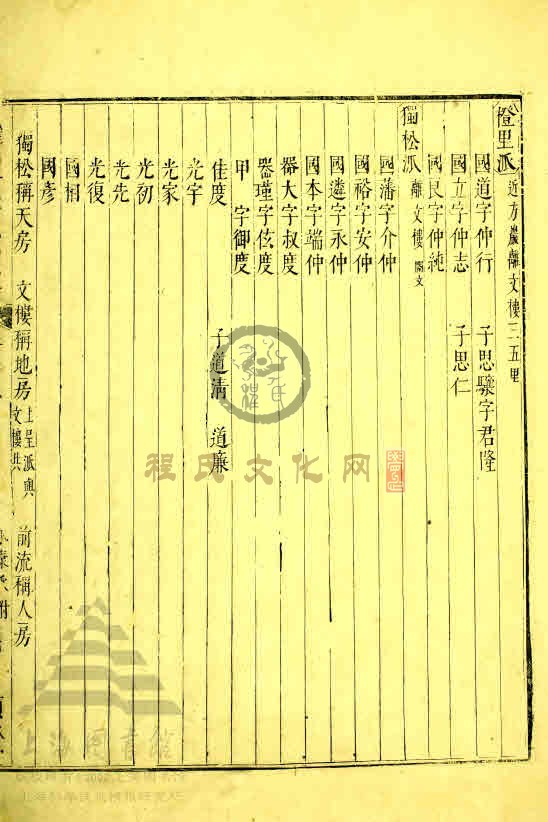 橙里派 近方巖離文樓三五里
國道字仲行 子思驥字君隆
國立字仲志 子思仁
國民字仲純
獨松派 離文樓 闕文
國藩字介仲
國裕字安仲
國遴字永仲
國本字端仲
器大字叔度
器瑾字伭度
甲 字御度
佳度 子道清 道廉
光宇
光家
光初
光先
光復
國相
國彥
獨松稱天房 文樓稱地房 上呈派與文樓共 前流稱人房
程氏文化网
上海圖書館